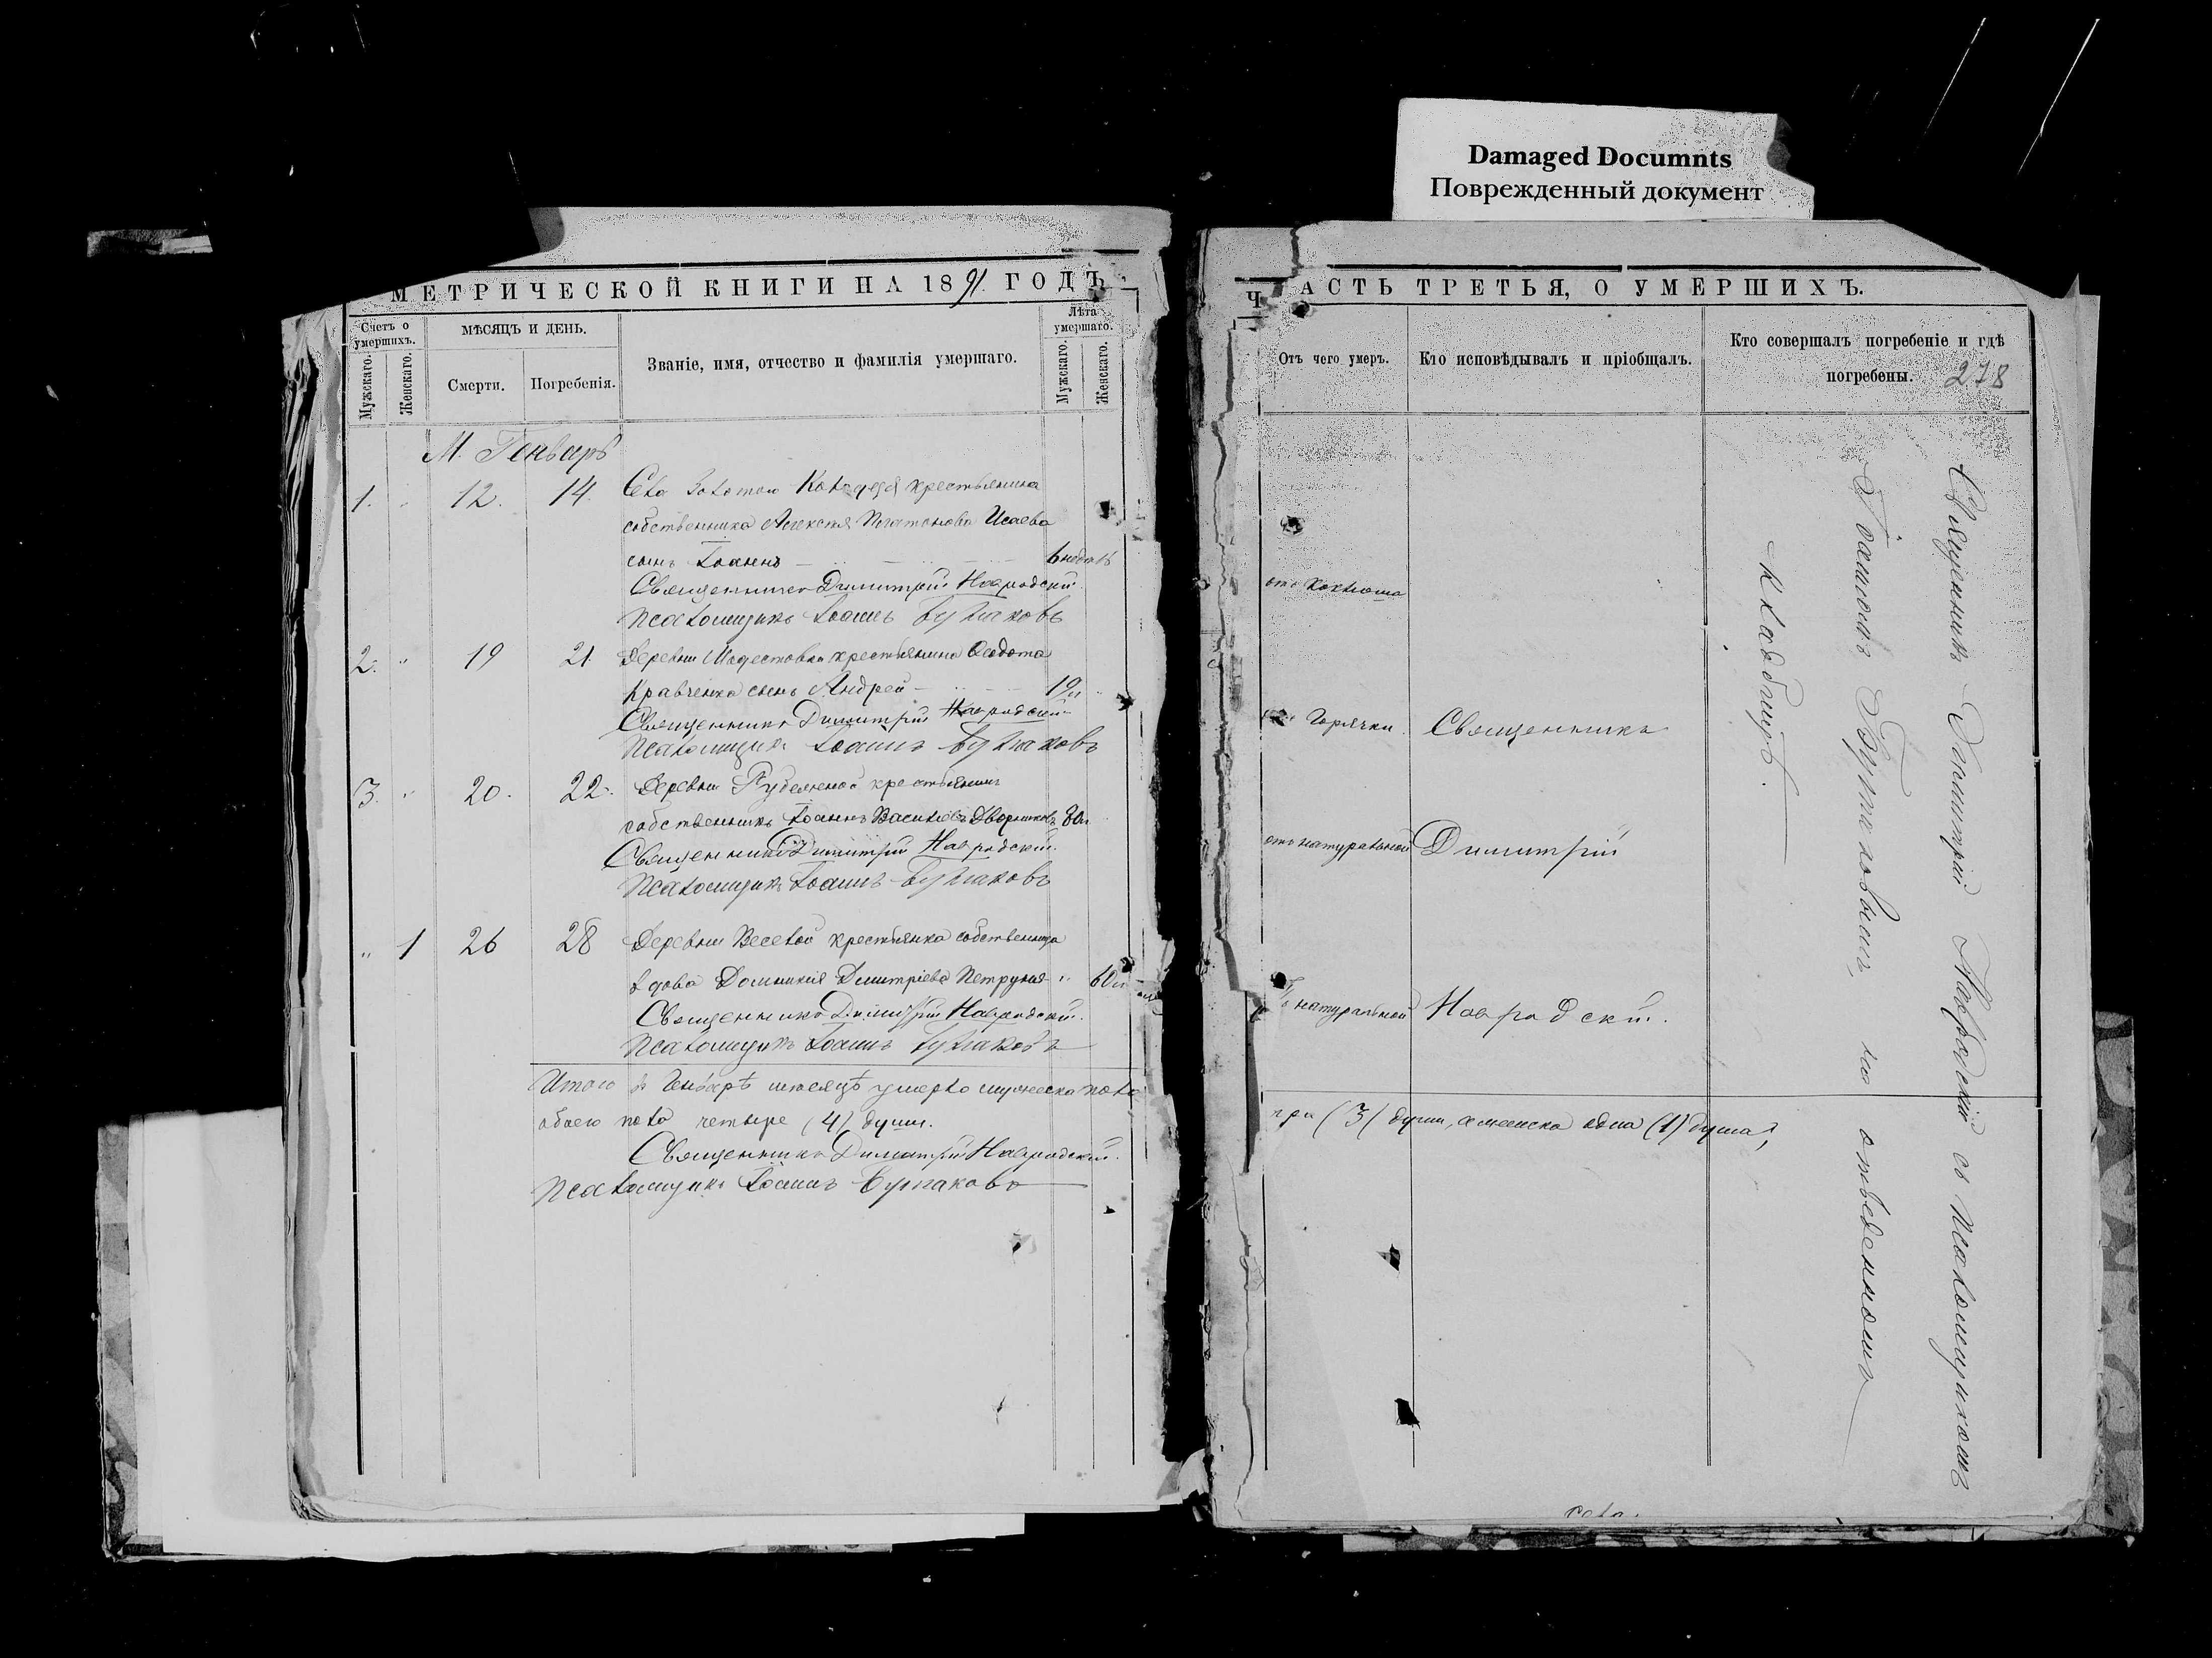 Damaged Documnts
Поврежденный документ
МЕТРИЧЕСКОЙ КНИГИ НА 1891 ГОДЪ
Счетъ о умершихъ.
Мужскаго.
Женскаго.
МѢСЯЦЪ И ДЕНЬ.
Смерти.
Погребенія.
Званіе, имя, отчество и фамилія умершаго.
Лѣта умершаго.
Мужскаго.
Женскаго.
М. Генварь
1. 12. 14. Села Золотой крестьянина
собственника Алексѣя Платонова Исаева
сынъ Іоаннъ 6 недѣль
Священникъ Димитрій Навродскій.
Псаломщикъ Іоаннъ Булгаковъ
2. " 19 21. Деревни Модестовки крестьянина Ѳеодота
Кравченка сынъ Андрей 19л "
Священникъ Димитрій Навродскій
Псаломщикъ Іоаннъ Булгаковъ
3. " 20. 22. Деревни крестьянинъ
собственникъ Іоаннъ Васильевъ Дворниковъ 80л
Священникъ Димитрій Навродскій.
Псаломщикъ Іоаннъ Булгаковъ
" 1 26 28 Деревни Веселой крестьянка собственница
вдова Домникія Димитріева Петруня " 60л
Священникъ Димитрій Навродскій.
Псаломщикъ Іоаннъ Булгаковъ
Итого въ Генварѣ мѣсяцѣ умерло мужеска пола
обоего пола четыре (4) души.
Священникъ Димитрій Навродскій.
Псаломщикъ Іоаннъ Булгаковъ
ЧАСТЬ ТРЕТЬЯ, О УМЕРШИХЪ.
Отъ чего умеръ.
Кто исповѣдывалъ и пріобщалъ.
Кто совершалъ погребеніе и гдѣ
погребены.
278
отъ коклюша
Горячки Священникъ
отъ натуральной Димитрій
натуральной Навродскій.
три (3) души, женска одна (1) душа,
Священникъ Димитрій Навродскій съ Псаломщикомъ
Іоанномъ Булгаковымъ, на отведенномъ
кладбищѣ.